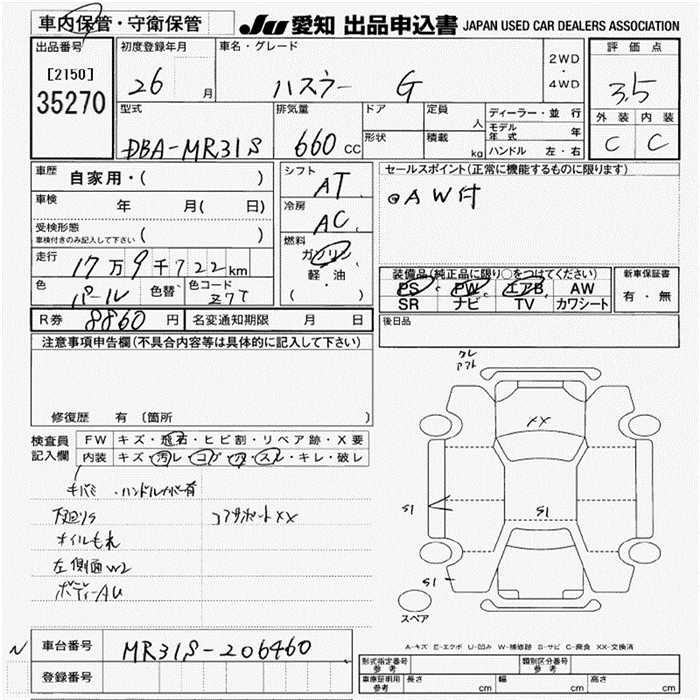 車内保管・守衛保管
JU 愛知 出品申込書 JAPAN USED CAR DEALERS ASSOCIATION
出品番号
[2150]
35270
初度登録年月
26 月
車名・グレード
ハスラー G
2WD
・
4WD
評価点
3.5
外装 内装
C C
型式
DBA-MR31S
排気量
660 CC
ドア
形状
定員
人
積載
kg
ディーラー・並行
モデル年式 年
ハンドル 左・右
車歴
自家用・( )
車検
年 月( 日)
受検形態
車検付きのみ記入して下さい ( )
走行
17万9千722km
色
パール
色替
色コード
Z7T
シフト
AT
冷房
AC
燃料
ガソリン
軽・油
( )
セールスポイント(正常に機能するものに限ります)
AW付
装備品(純正品に限り○をつけてください)
PS PW エアB AW
SR ナビ TV カワシート
新車保証書
有・無
R券 8860円 名変通知期限 月 日
後日品
注意事項申告欄(不具合内容等は具体的に記入して下さい)
修復歴 有 〔箇所
検査員
記入欄
FW キズ・飛石・ヒビ割・リペア跡・X要
内装 キズ・汚レ・コゲ・穴・スレ・キレ・破レ
・ハンドルカバー有
下回りS
コアサポートXX
オイルもれ
左側面W2
ボディーAU
XX
S1
S1
S1
スペア
A-キズ E-エクボ U-凹み W-補修跡 S-サビ C-腐食 XX-交換済
N
車台番号 MR31S-206460
登録番号
型式指定番号
参考
類別区分番号
参考
車庫証明用
参考
長さ cm 幅 cm 高さ cm